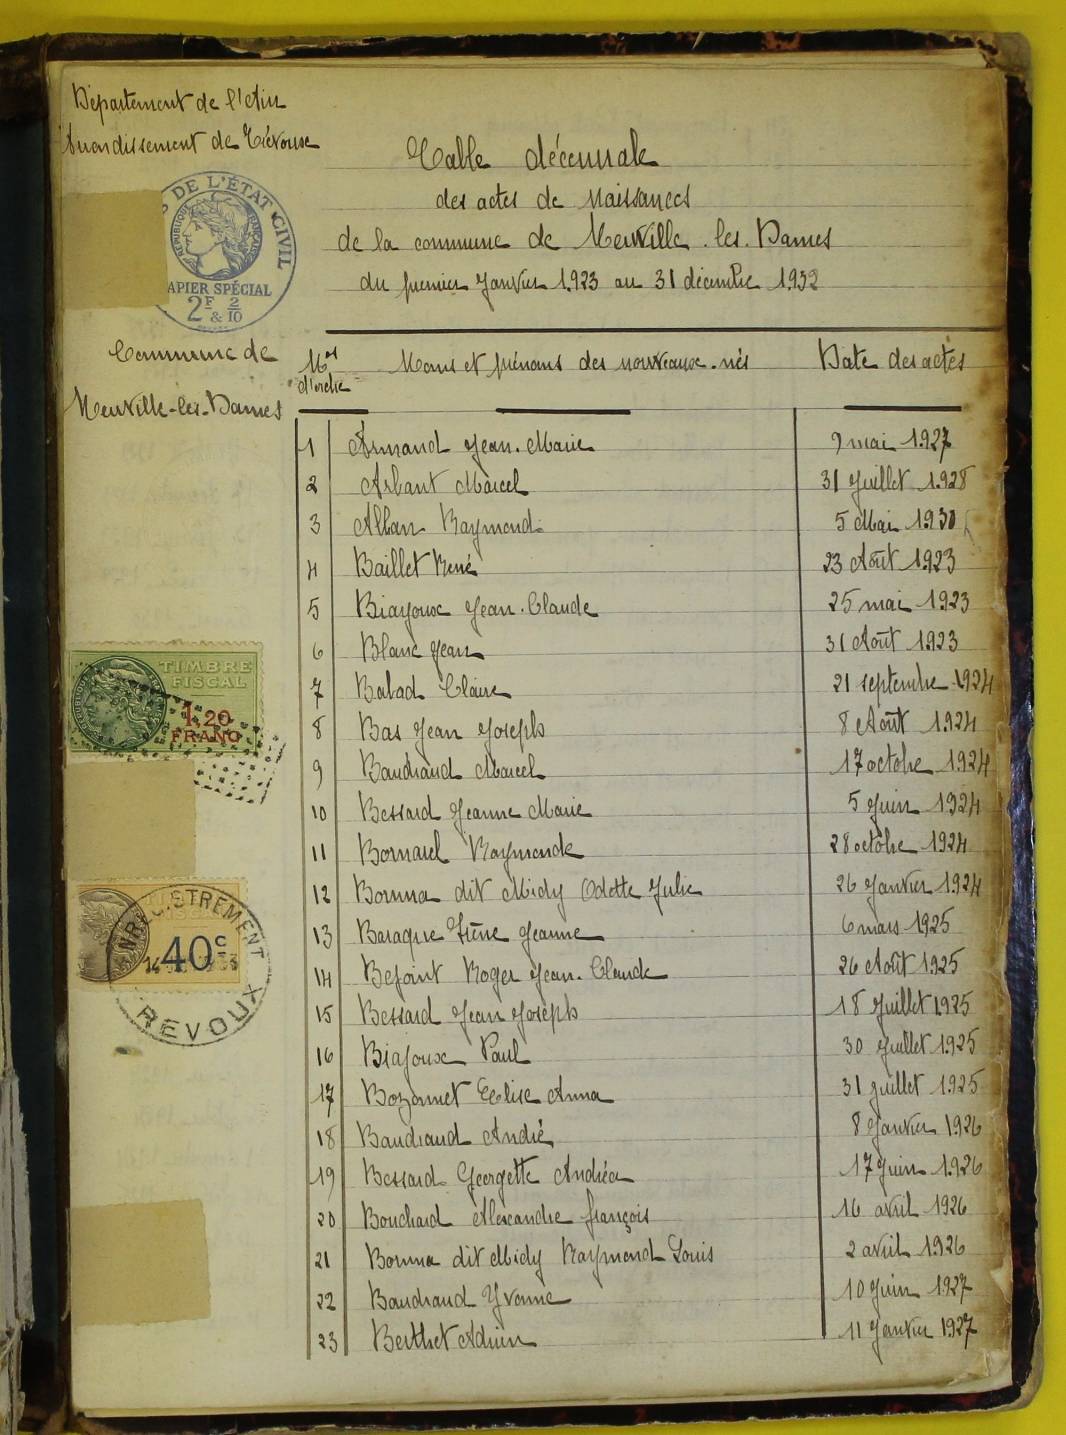 Département de l'Ain
Arrondissement de Trévoux
DE L'ÉTAT CIVIL
RÉPUBLIQUE FRANÇAISE
PAPIER SPÉCIAL
2F & 2/10
Table décennale
des actes de naissances
de la commune de Neuville-les-Dames
du premier Janvier 1923 au 31 décembre 1932
Commune de
Neuville-les-Dames
Nos d'ordre Noms et prénoms des nouveaux-nés Date des actes
1 Armand Jean-Marie 9 mai 1927
2 Arbant Marcel 31 Juillet 1928
3 Alban Raymond 5 Mai 1930
4 Baillet René 23 Août 1923
5 Biajoux Jean-Claude 25 mai 1923
6 Blanc Jean 31 Août 1923
7 Balad Claire 21 septembre 1924
8 Bas Jean Joseph 8 Août 1924
9 Baudrand Marcel 17 octobre 1924
10 Bessard Jeanne Marie 5 Juin 1924
11 Bornarel Raymonde 28 octobre 1924
12 Bonna dit Midy Odette Julie 26 Janvier 1924
13 Baraque Irène Jeanne 6 mars 1925
14 Bejoint Roger Jean-Claude 26 Août 1925
15 Bessard Jean Joseph 18 Juillet 1925
16 Biajoux Paul 30 Juillet 1925
17 Bozonnet Élise Anna 31 juillet 1925
18 Baudraud André 8 Janvier 1926
19 Bessard Georgette Andréa 17 Juin 1926
20 Bouchard Alexandre françois 16 avril 1926
21 Bonna dit Midy Raymond Louis 2 avril 1926
22 Baudrand Yvonne 10 Juin 1927
23 Berthet Adrien 11 Janvier 1927
TIMBRE
FISCAL
1,20
FRANC
ENREGISTREMENT
40c
RÉVOUX